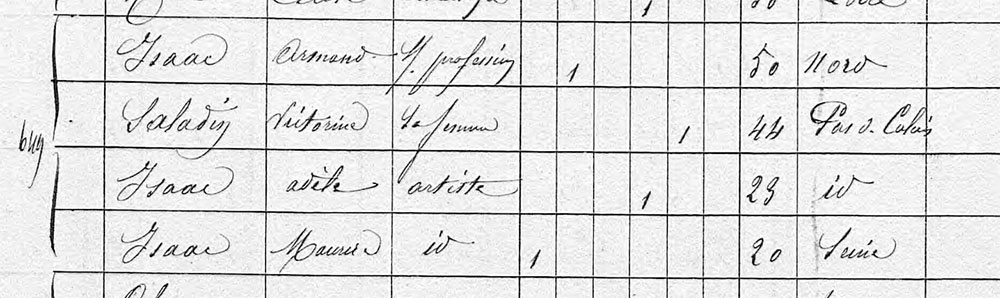 Isaac Armand S. profession 1 50 Nord
649 Saladin Victorine Sa femme 1 44 Pas d. Calais
Isaac adèle artiste 1 23 id
Isaac Maurice id 1 20 Seine